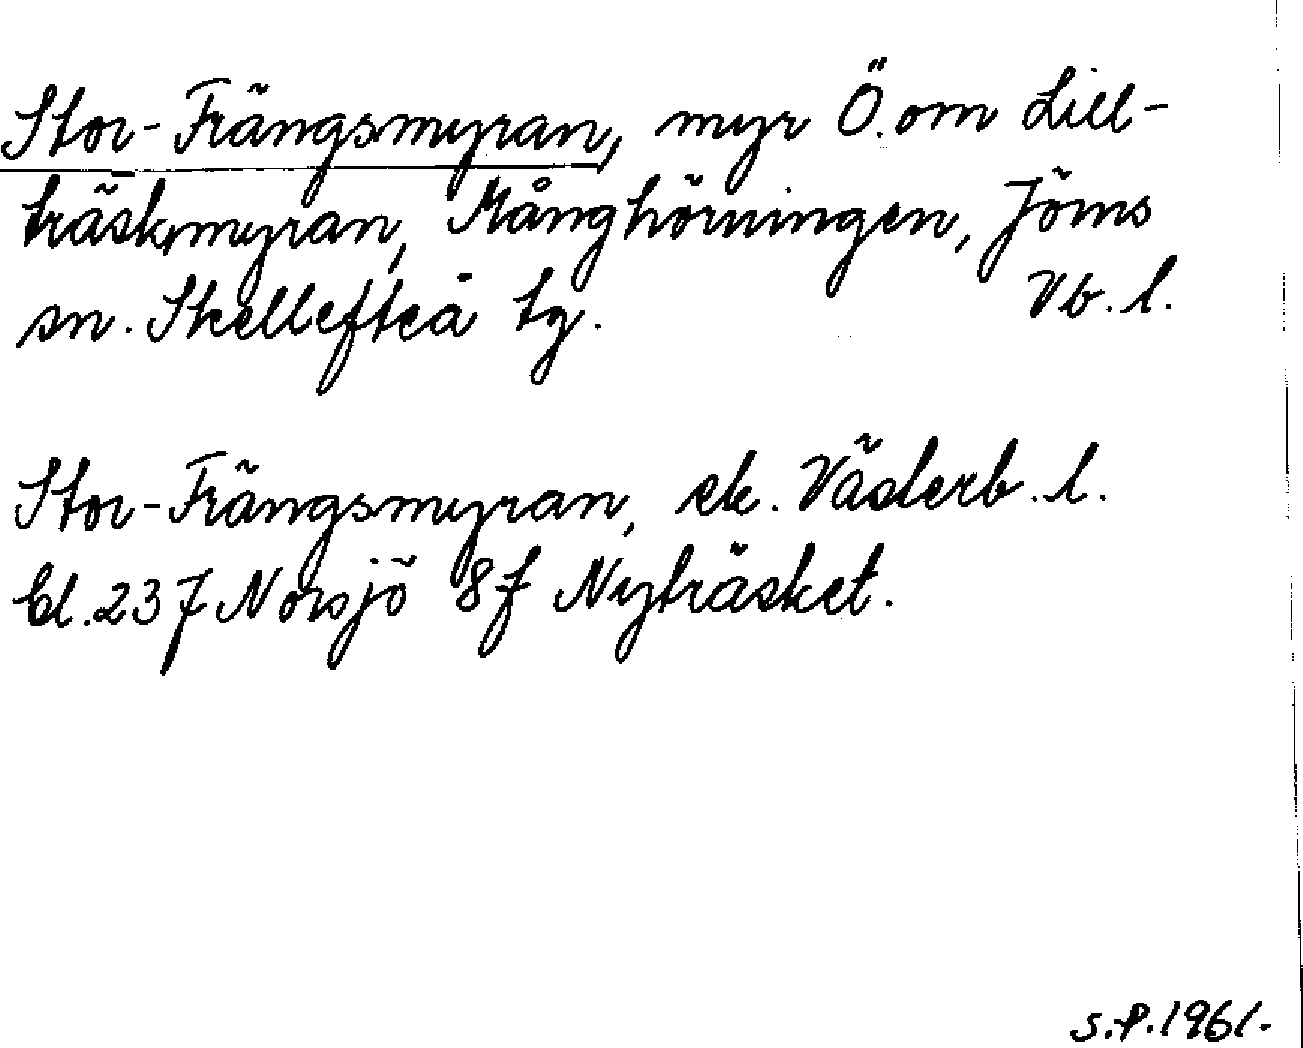 Stor-Frängsmyran, myr Ö. om Lill-
träskmyran, Månghörningen, Jörns
sn. Skellefteå tg. Vb. l.
Stor-Frängsmyran, ek. Västerb. l.
bl. 237 Norsjö 8f Nyträsket.
S.P. 1961.